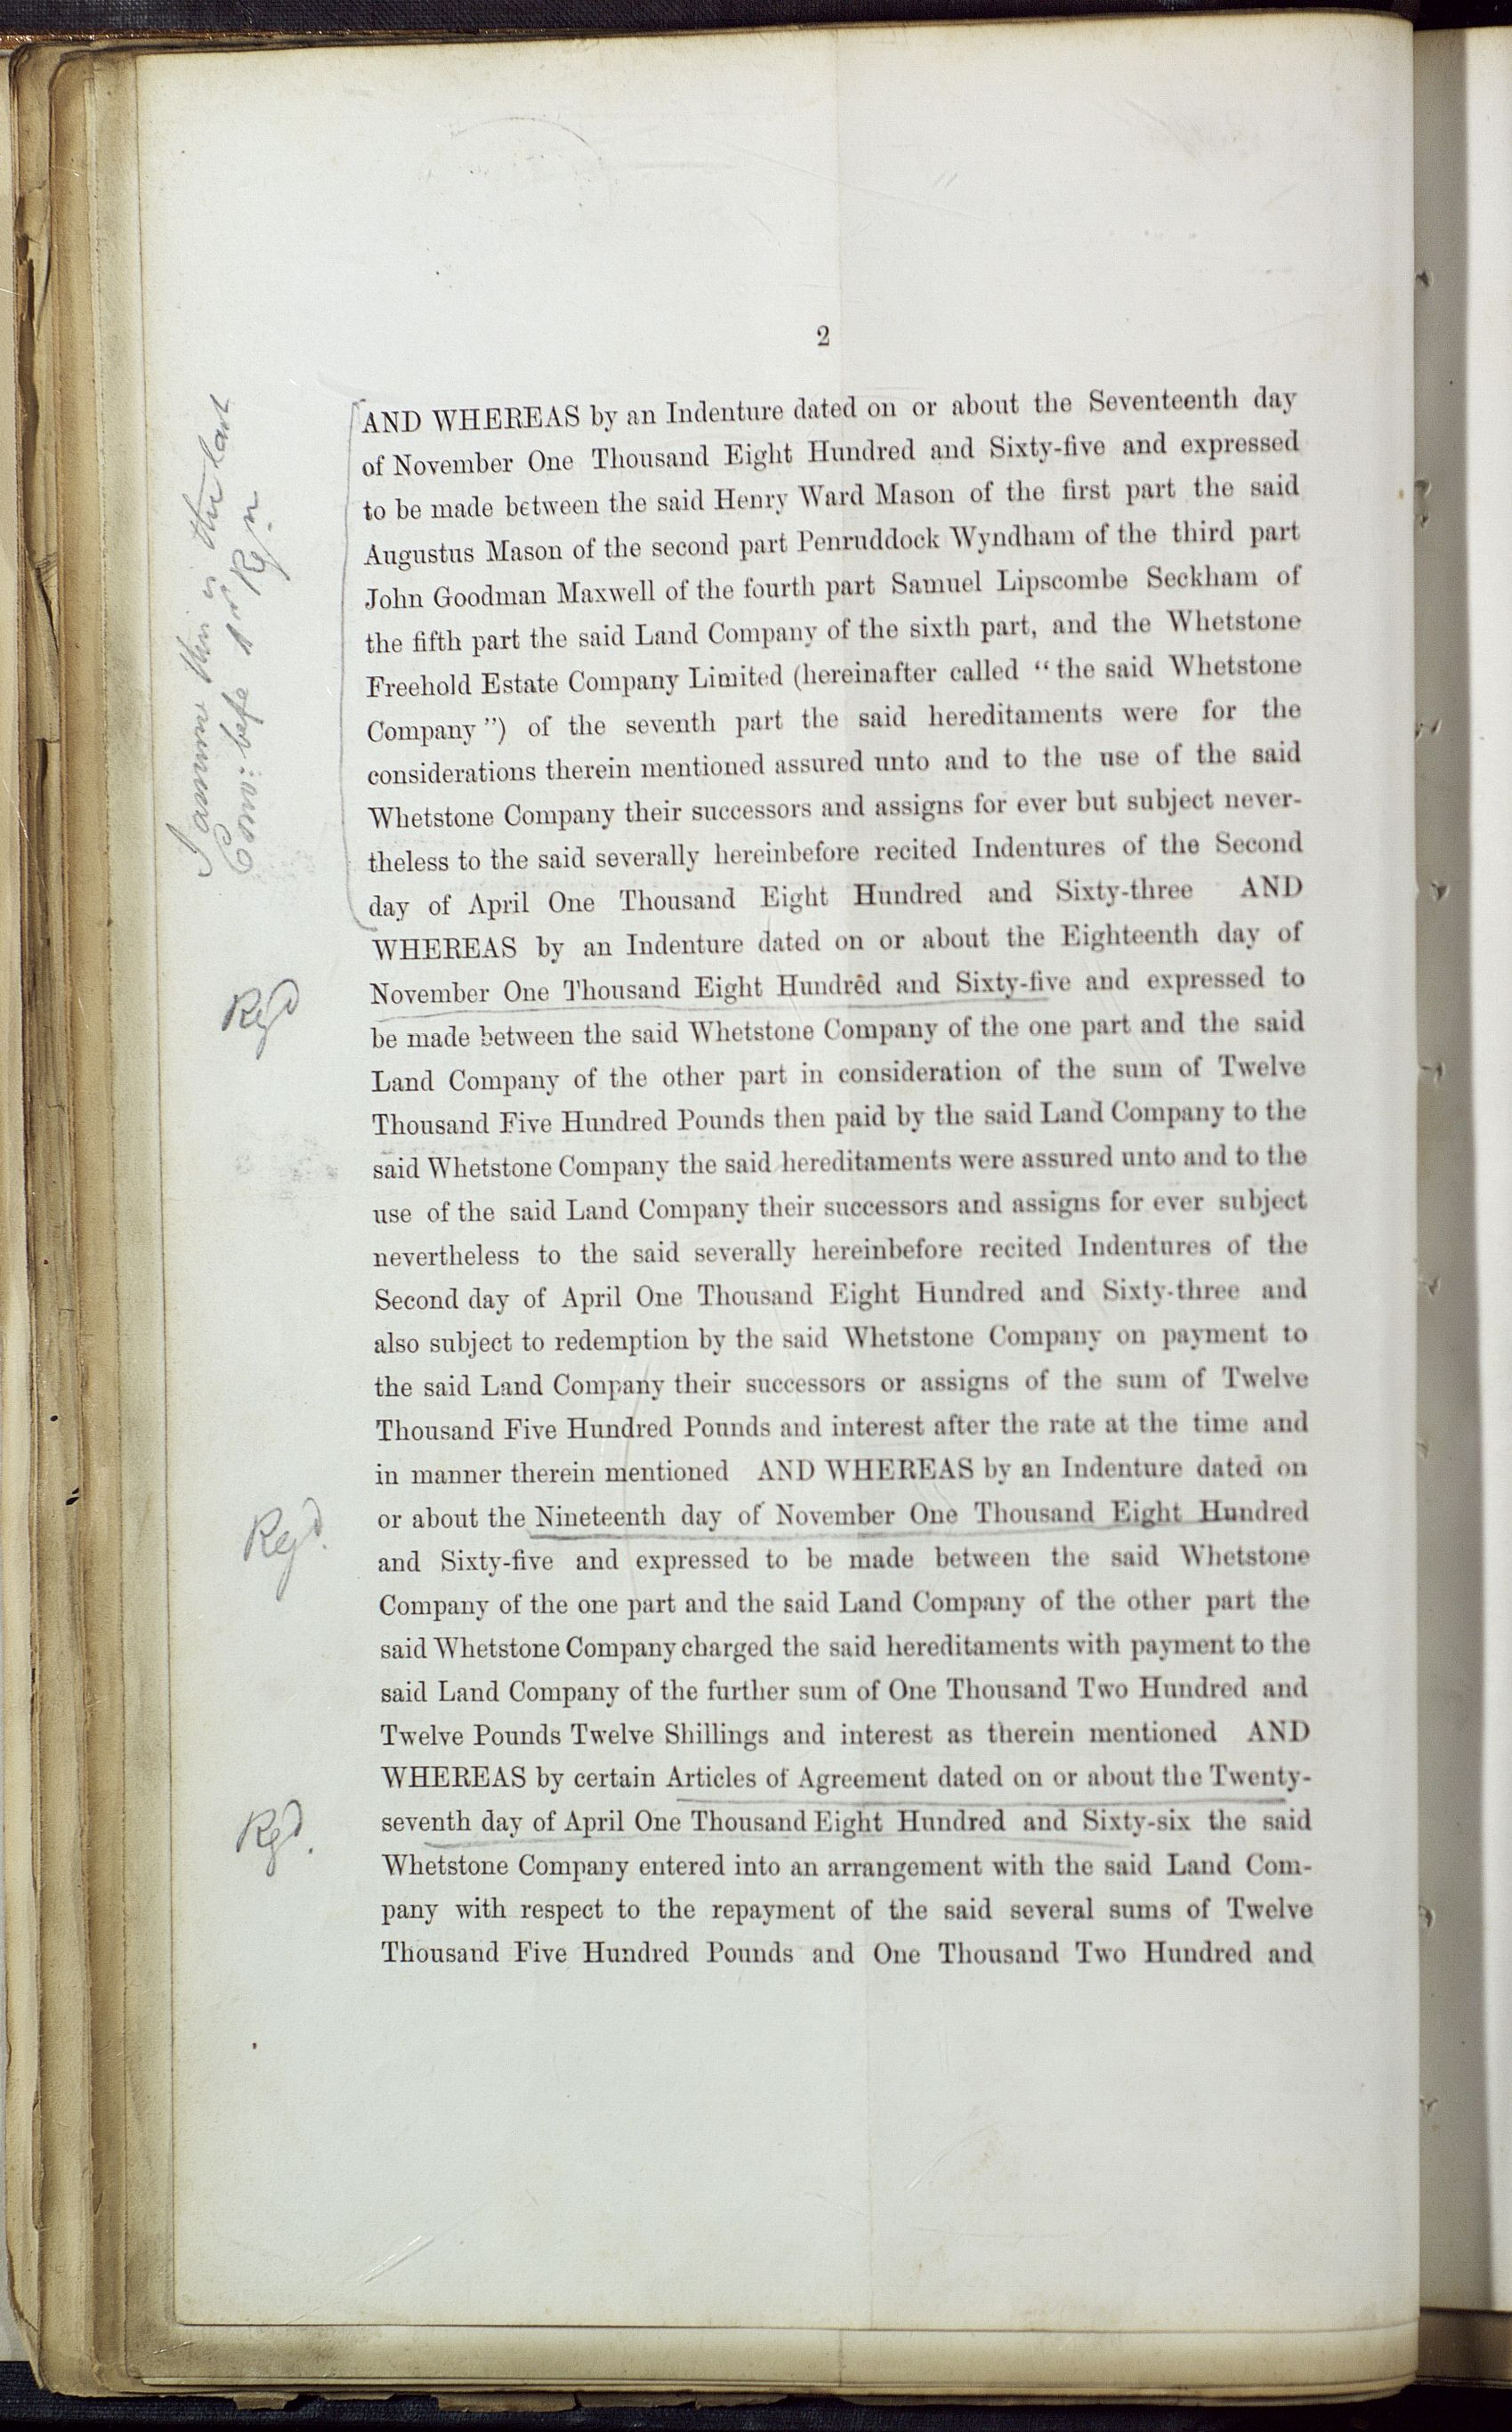 2
AND WHEREAS by an Indenture dated on or about the Seventeenth day
of November One Thousand Eight Hundred and Sixty-five and expressed
to be made between the said Henry Ward Mason of the first part the said
Augustus Mason of the second part Penruddock Wyndham of the third part
John Goodman Maxwell of the fourth part Samuel Lipscombe Seckham of
the fifth part the said Land Company of the sixth part, and the Whetstone
Freehold Estate Company Limited (hereinafter called “the said Whetstone
Company”) of the seventh part the said hereditaments were for the
considerations therein mentioned assured unto and to the use of the said
Whetstone Company their successors and assigns for ever but subject never-
theless to the said severally hereinbefore recited Indentures of the Second
day of April One Thousand Eight Hundred and Sixty-three AND
WHEREAS by an Indenture dated on or about the Eighteenth day of
November One Thousand Eight Hundred and Sixty-five and expressed to
be made between the said Whetstone Company of the one part and the said
Land Company of the other part in consideration of the sum of Twelve
Thousand Five Hundred Pounds then paid by the said Land Company to the
said Whetstone Company the said hereditaments were assured unto and to the
use of the said Land Company their successors and assigns for ever subject
nevertheless to the said severally hereinbefore recited Indentures of the
Second day of April One Thousand Eight Hundred and Sixty-three and
also subject to redemption by the said Whetstone Company on payment to
the said Land Company their successors or assigns of the sum of Twelve
Thousand Five Hundred Pounds and interest after the rate at the time and
in manner therein mentioned AND WHEREAS by an Indenture dated on
or about the Nineteenth day of November One Thousand Eight Hundred
and Sixty-five and expressed to be made between the said Whetstone
Company of the one part and the said Land Company of the other part the
said Whetstone Company charged the said hereditaments with payment to the
said Land Company of the further sum of One Thousand Two Hundred and
Twelve Pounds Twelve Shillings and interest as therein mentioned AND
WHEREAS by certain Articles of Agreement dated on or about the Twenty-
seventh day of April One Thousand Eight Hundred and Sixty-six the said
Whetstone Company entered into an arrangement with the said Land Com-
pany with respect to the repayment of the said several sums of Twelve
Thousand Five Hundred Pounds and One Thousand Two Hundred and
this is the last
Regd
Regd.
Regd.